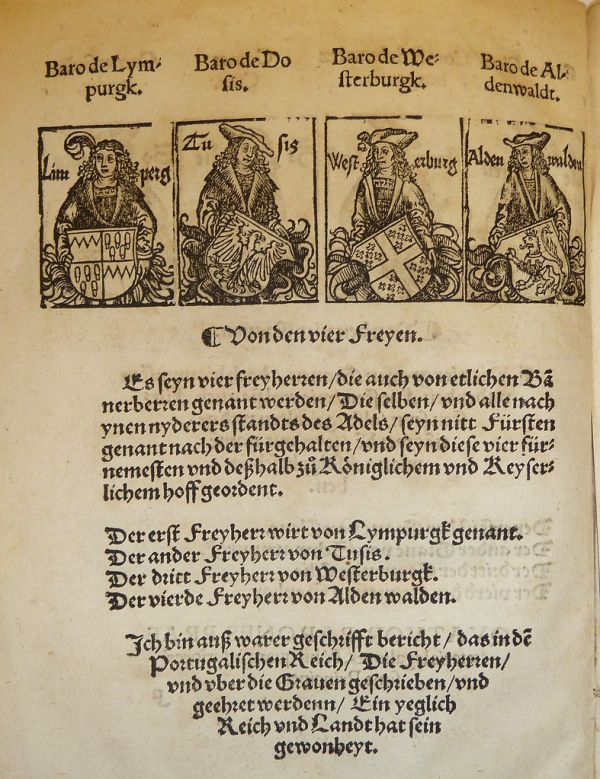 Baro de Lym⸗
purgk.
Baro de Do
sis.
Baro de We⸗
sterburgk.
Baro de Al⸗
denwaldt.
Lim perg
Tu sis
West erburg
Alden walden
¶ Von den vier Freyen.
Es seyn vier freyherren/die auch von etlichen Bā
nerherren genant werden/Die selben/vnd alle nach
ynen nyderers standts des Adels/seyn nitt Fürsten
genant nach der fürgehalten/vnd seyn diese vier für⸗
nemesten vnd deßhalb zů Königlichem vnd Keyser⸗
lichem hoff geordent.
Der erst Freyherr wirt von Lympurgk genant.
Der ander Freyherr von Tusis.
Der dritt Freyherr von Westerburgk.
Der vierde Freyherr von Alden walden.
Ich bin auß warer geschrifft bericht/das in dē
Portugalischen Reich/ Die Freyherren/
vnd vber die Grauen geschrieben/vnd
geehret werdenn/ Ein yeglich
Reich vnd Landt hat sein
gewonheyt.